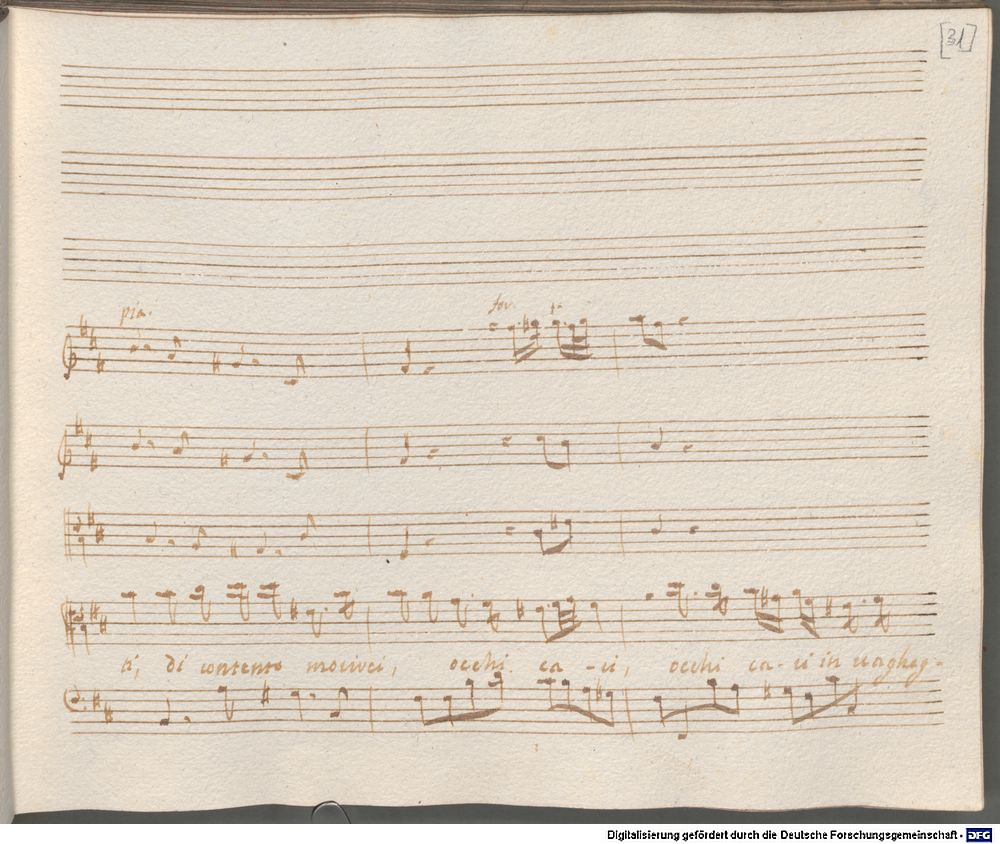 [31]
pia. for. f.
ti, di contento morirei, occhi ca-ri, occhi ca-ri in vagheg-
Digitalisierung gefördert durch die Deutsche Forschungsgemeinschaft - DFG